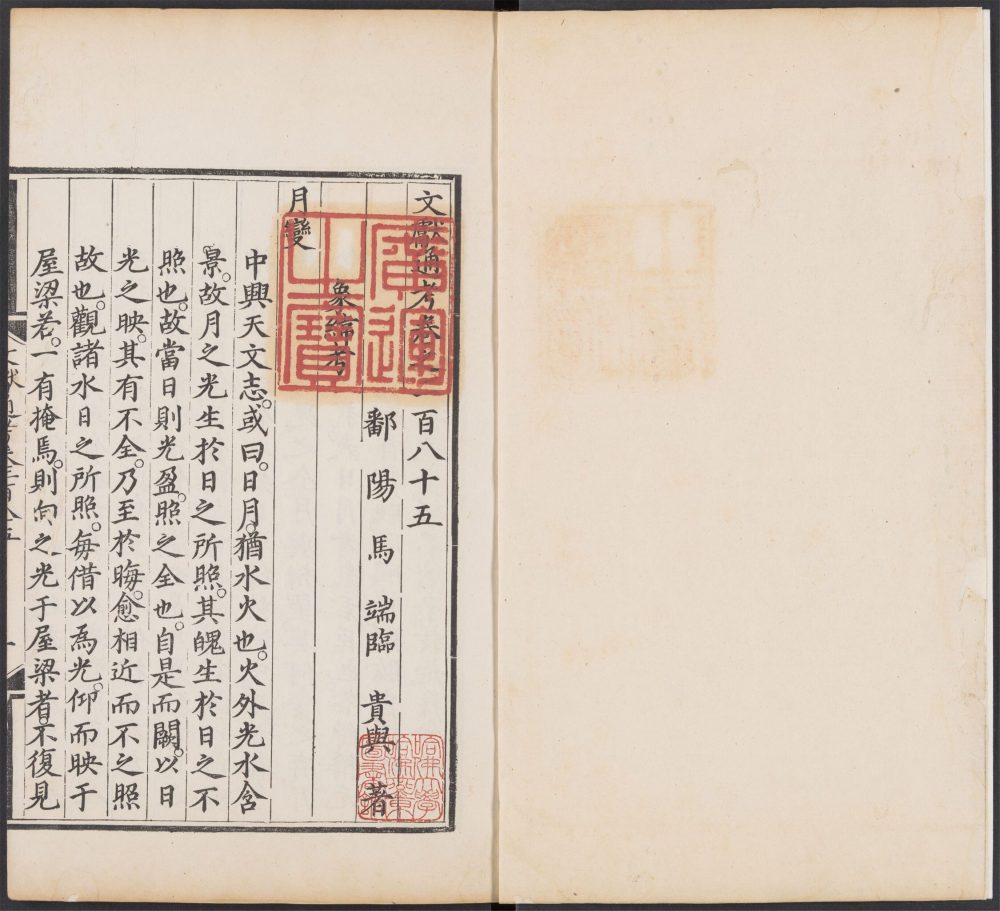 文獻通考卷之二百八十五
鄱陽馬端臨貴與著
象緯考
月變
中興天文志或曰日月猶水火也火外光水含
景故月之光生於日之所照其魄生於日之不
照也故當日則光盈照之全也自是而闕以日
光之映其有不全乃至於晦愈相近而不之照
故也觀諸水日之所照每借以為光仰而映于
屋梁若一有掩焉則向之光于屋梁者不復見